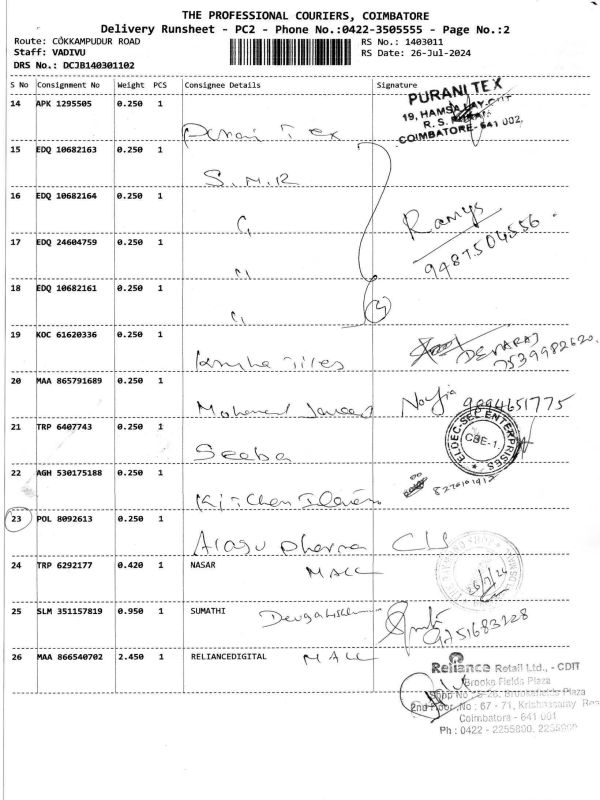 THE PROFESSIONAL COURIERS, COIMBATORE
Delivery Runsheet - PC2 - Phone No.:0422-3505555 - Page No.:2
Route: COKKAMPUDUR ROAD
Staff: VADIVU
DRS No.: DCJB140301102
RS No.: 1403011
RS Date: 26-Jul-2024
S No Consignment No Weight PCS Consignee Details Signature
14 APK 1295505 0.250 1
PURANI TEX
19, HAMSA LAY-OUT
R. S.
COIMBATORE-641 002.
Tex
15 EDQ 10682163 0.250 1
S.M.R
16 EDQ 10682164 0.250 1
Ramys
9487504556
17 EDQ 24604759 0.250 1
18 EDQ 10682161 0.250 1
4
19 KOC 61620336 0.250 1
Tiles
DEVARAJ
7539982620
20 MAA 865791689 0.250 1
Mohamed
9894651775
21 TRP 6407743 0.250 1
Seeba
ELDEC-SEP ENTERPRISES
CBE-1.
22 AGH 530175188 0.250 1
Kitchen
23 POL 8092613 0.250 1
Arasu Pharma
24 TRP 6292177 0.420 1 NASAR
MALL
26/7/24
25 SLM 351157819 0.950 1 SUMATHI
9751683228
26 MAA 866540702 2.450 1 RELIANCEDIGITAL MALL
Reliance Retail Ltd., - CDIT
Brooke Fields Plaza
Shop No : S-26, Brookefields Plaza
2nd Floor, No : 67 - 71, Krishnasamy Roa
Coimbatore - 641 001
Ph : 0422 - 2255800, 2255900